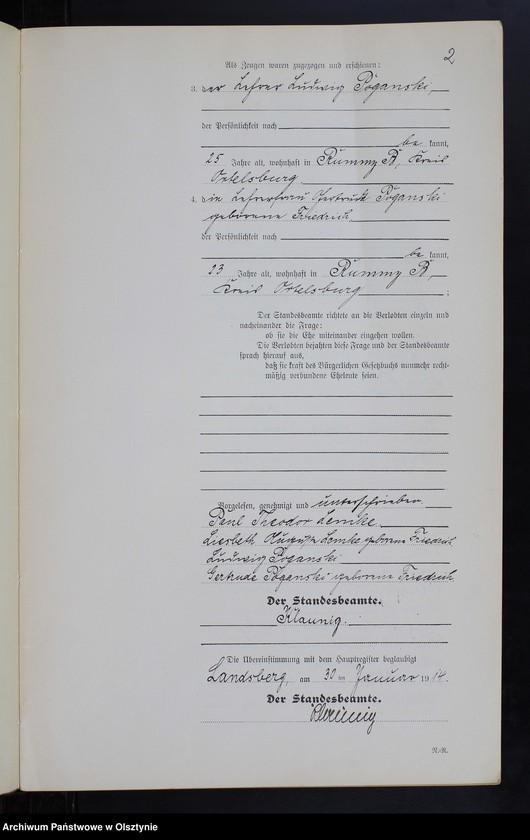 2
Als Zeugen waren zugezogen und erschienen:
3. der Lehrer Ludwig Poganski,
der Persönlichkeit nach
be kannt,
25 Jahre alt, wohnhaft in Rummy B, Kreis
Ortelsburg
4. die Lehrerfrau Gertrude Poganski
geborene Friedrich,
der Persönlichkeit nach
be kannt,
23 Jahre alt, wohnhaft in Rummy B,
Kreis Ortelsburg ;
Der Standesbeamte richtete an die Verlobten einzeln und
nacheinander die Frage:
ob sie die Ehe miteinander eingehen wollen.
Die Verlobten bejahten diese Frage und der Standesbeamte
sprach hierauf aus,
daß sie kraft des Bürgerlichen Gesetzbuchs nunmehr recht-
mäßig verbundene Eheleute seien.
Vorgelesen, genehmigt und unterschrieben
Paul Theodor Lemke
Liesbeth Auguste Lemke geborne Friedrich
Ludwig Poganski
Gertrude Poganski geborene Friedrich
Der Standesbeamte.
Klaunig.
Die Übereinstimmung mit dem Hauptregister beglaubigt
Landsberg, am 30 ten Januar 1914.
Der Standesbeamte.
Klaunig
N.-R.
Archiwum Państwowe w Olsztynie